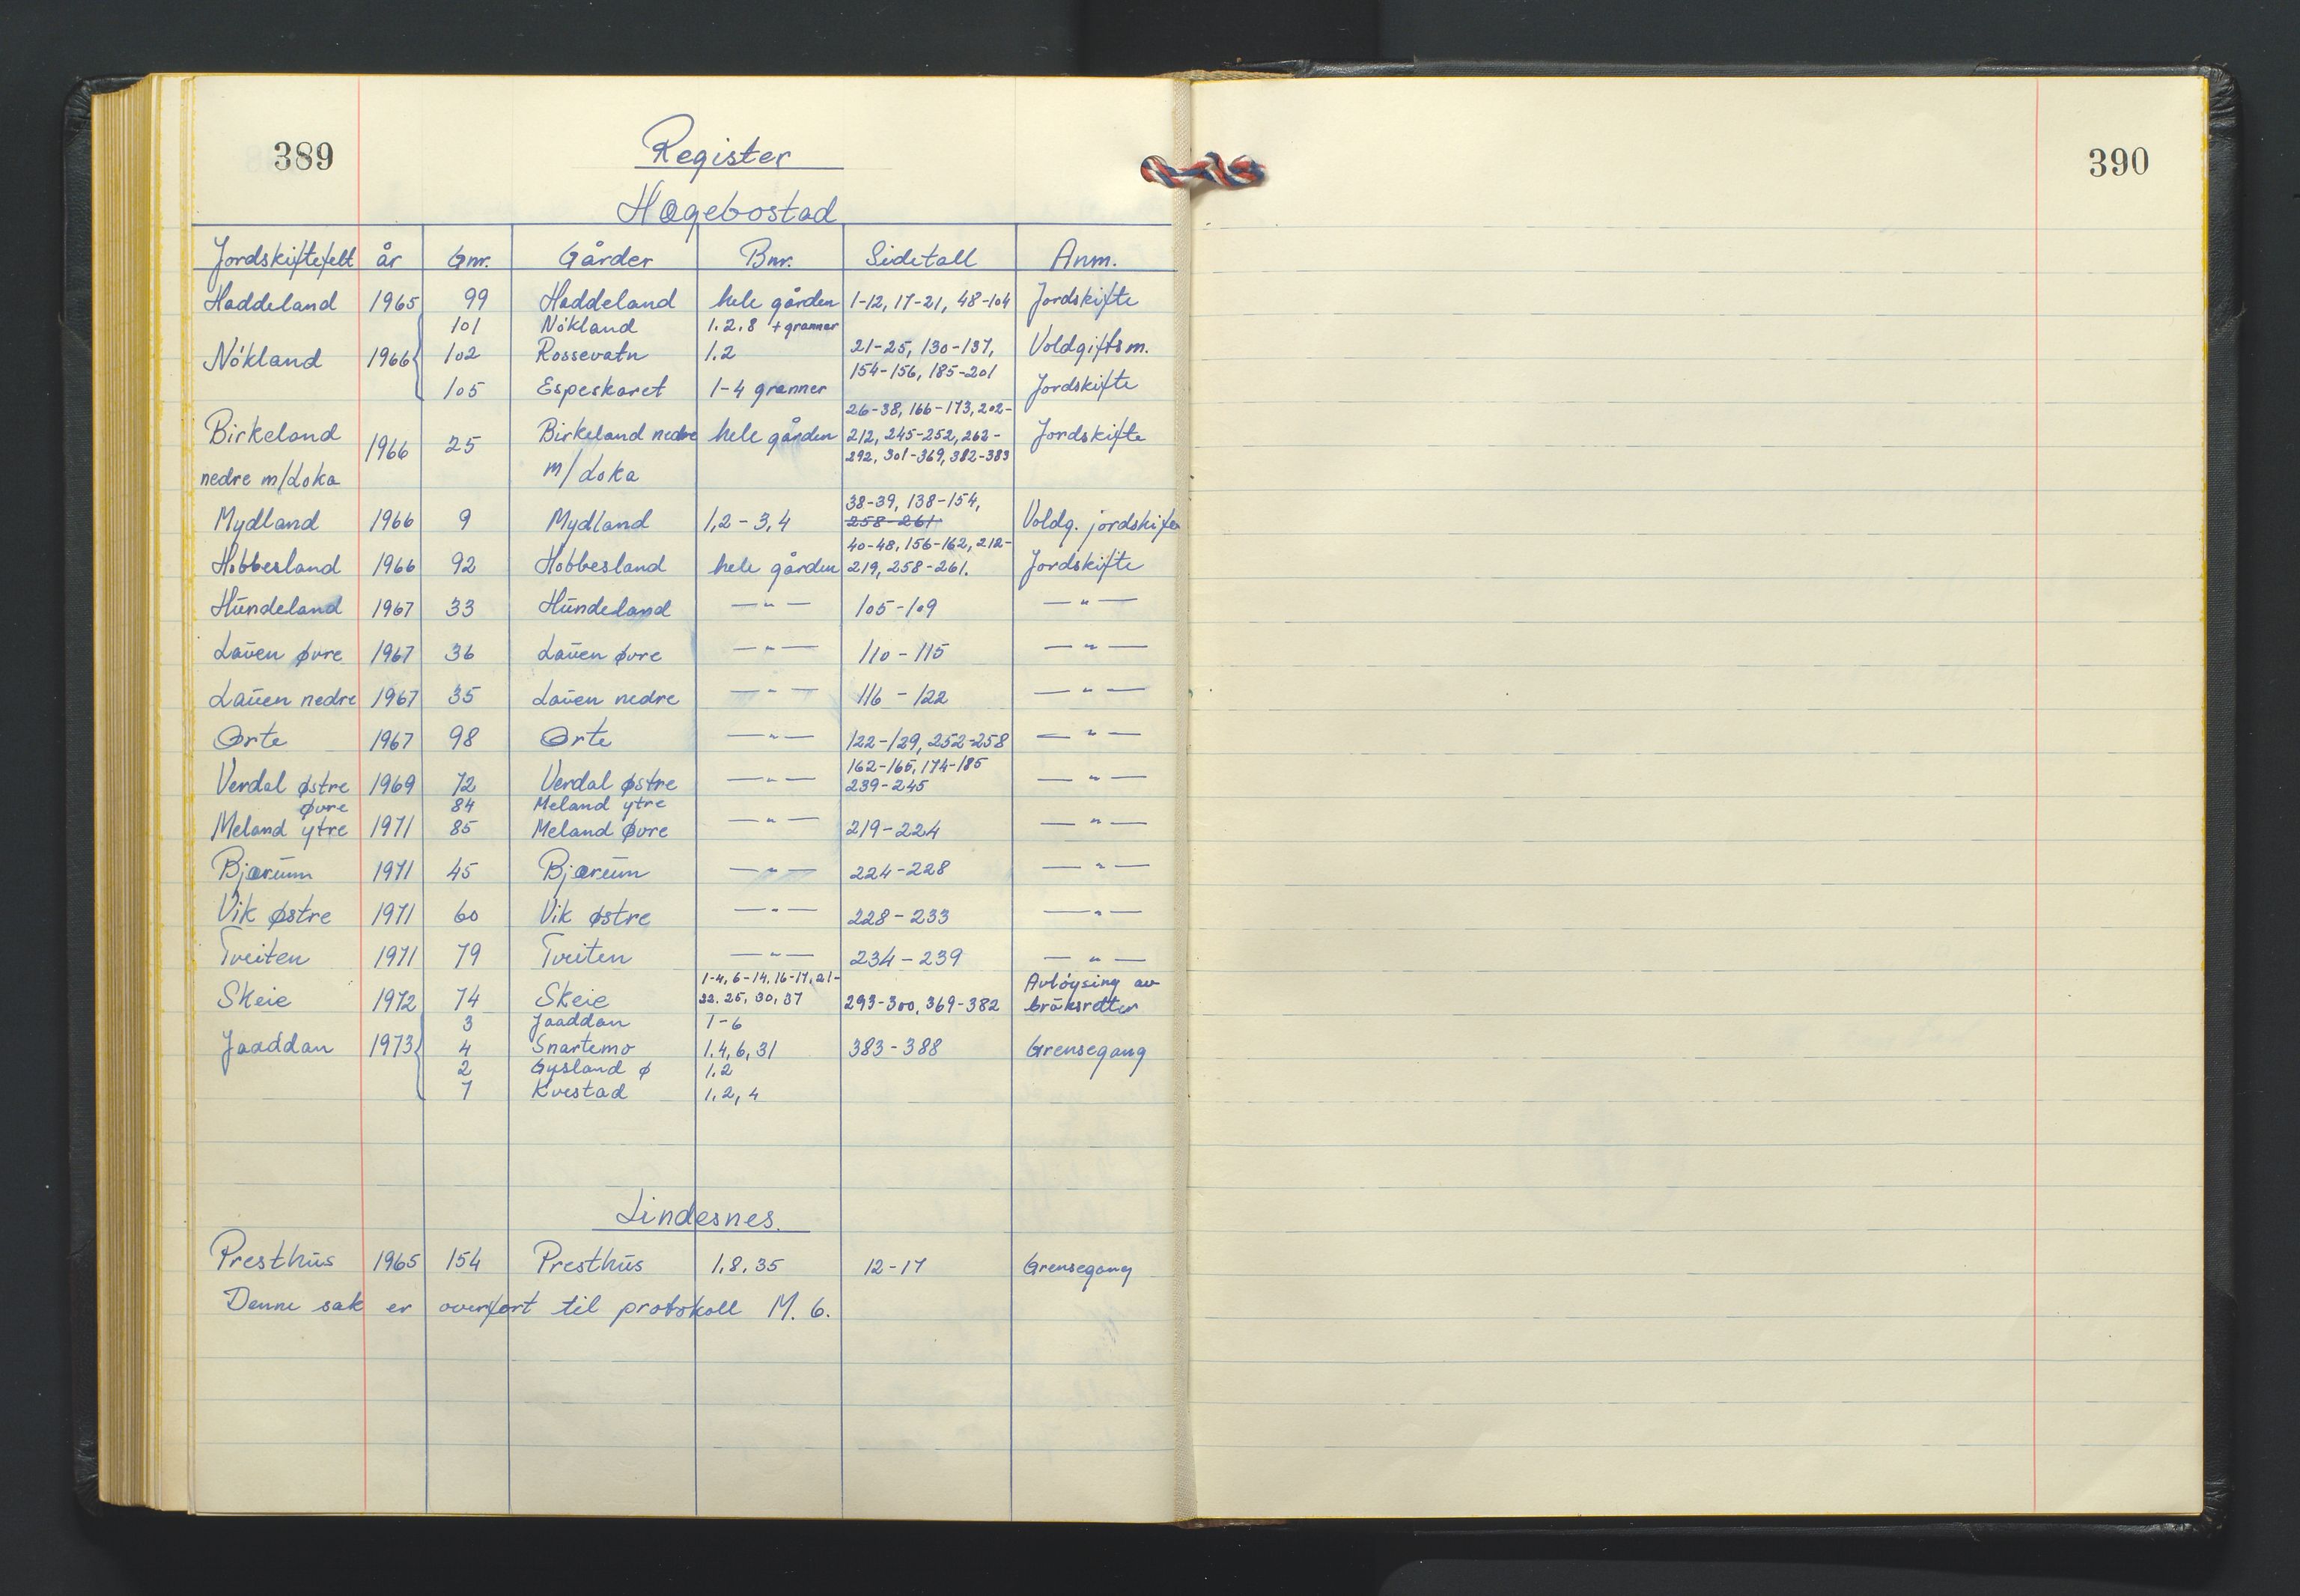 389
Register
Hægebostad
Jordskiftefelt år Gnr. Gårder Bnr. Sidetall Anm.
Haddeland 1965 99 Haddeland hele gården 1-12, 17-21, 48-104 Jordskifte
101 Nökland 1.2.8 + grannar
Nökland 1966 102 Rossevatn 1.2 21-25, 130-137, Voldgiftsm.
154-156, 185-201
105 Espeskaret 1-4 granner Jordskifte
26-38, 166-173, 202-
Birkeland 1966 25 Birkeland nedre hele gården 212, 245-252, 262- Jordskifte
292, 301-369, 382-383
nedre m/Loka m/Loka
38-39, 138-154,
Mydland 1966 9 Mydland 1,2-3,4 258-261 Voldg. jordskifte
40-48, 156-162, 212-
Hobbesland 1966 92 Hobbesland hele gården 219, 258-261. Jordskifte
Hūndeland 1967 33 Hūndeland —"— 105-109 —"—
Laūen øvre 1967 36 Laūen øvre —"— 110-115 —"—
Laūen nedre 1967 35 Laūen nedre —"— 116-122 —"—
Ørte 1967 98 Ørte —"— 122-129, 252-258 —"—
162-165, 174-185
Verdal østre 1969 72 Verdal østre —"— 239-245 —"—
øvre 84 Meland ytre
Meland ytre 1971 85 Meland øvre —"— 219-224 —"—
Bjærūm 1971 45 Bjærūm —"— 224-228 —"—
Vik østre 1971 60 Vik østre —"— 228-233 —"—
Tveiten 1971 79 Tveiten —"— 234-239 —"—
1-4, 6-14, 16-17, 21- Avløysing av
Skeie 1972 74 Skeie 22. 25, 30, 37 293-300, 369-382 brūksretter
3 Jaaddan 1-6
Jaaddan 1973 4 Snartemo 1.4, 6, 31 383-388 Grensegang
2 Gysland ø 1.2
7 Kvestad 1.2, 4
Lindesnes.
Presthūs 1965 154 Presthūs 1.8.35 12-17 Grensegang
Denne sak er overført til protokoll M. 6.
390